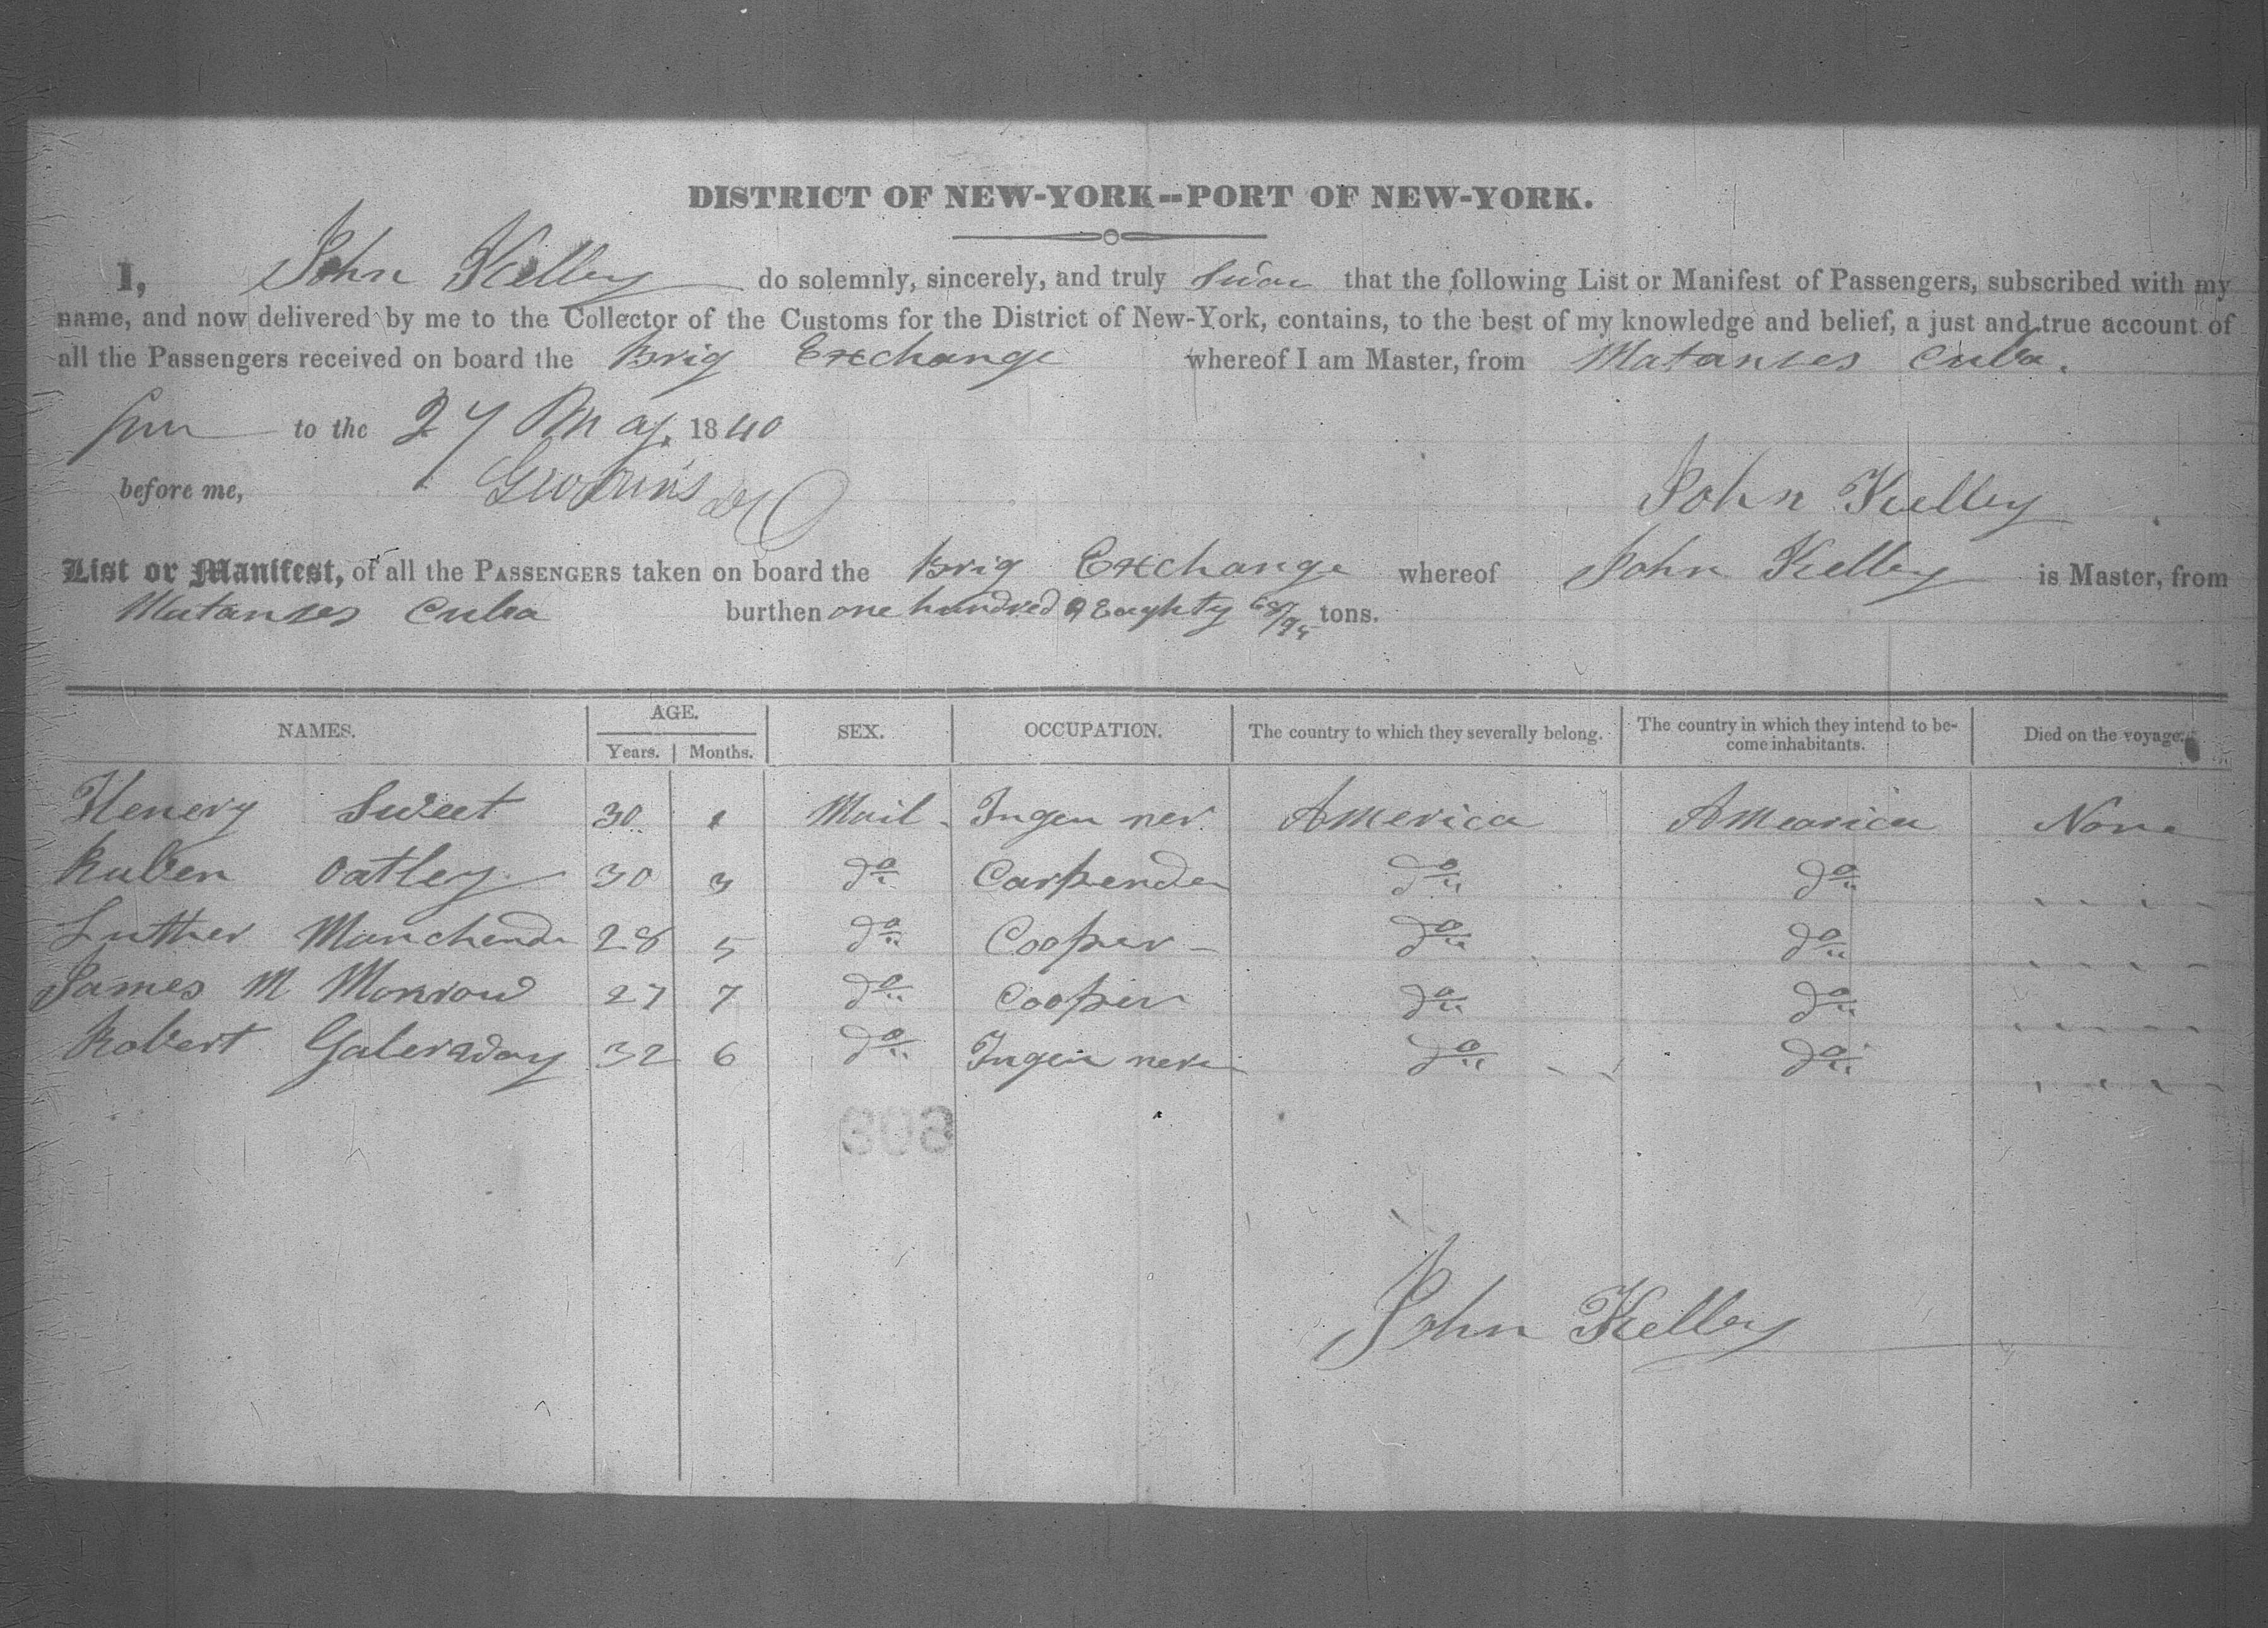 DISTRICT OF NEW-YORK--PORT OF NEW-YORK.
I, John Kelley do solemnly, sincerely, and truly swear that the following List or Manifest of Passengers, subscribed with my
name, and now delivered by me to the Collector of the Customs for the District of New-York, contains, to the best of my knowledge and belief, a just and true account of
all the Passengers received on board the Brig Exchange whereof I am Master, from Matanses Cuba.
to the 27 May. 1840
before me, John Kelley
List or Manifest, of all the PASSENGERS taken on board the Brig Exchange whereof John Kelley is Master, from
Matanses Cuba burthen one hundred & Eaighty 68/95 tons.
NAMES. AGE. SEX. OCCUPATION. The country to which they severally belong. The country in which they intend to be-
come inhabitants. Died on the voyage.
Years. Months.
Henery Sweet 30 Mail Ingenner America Amearica None
Ruben Oatley 30 3 do Carpender do do
Luther 28 5 do Cooper do do
James M Monrow 27 7 do Cooper do do
Robert 32 6 do do do
John Kelley